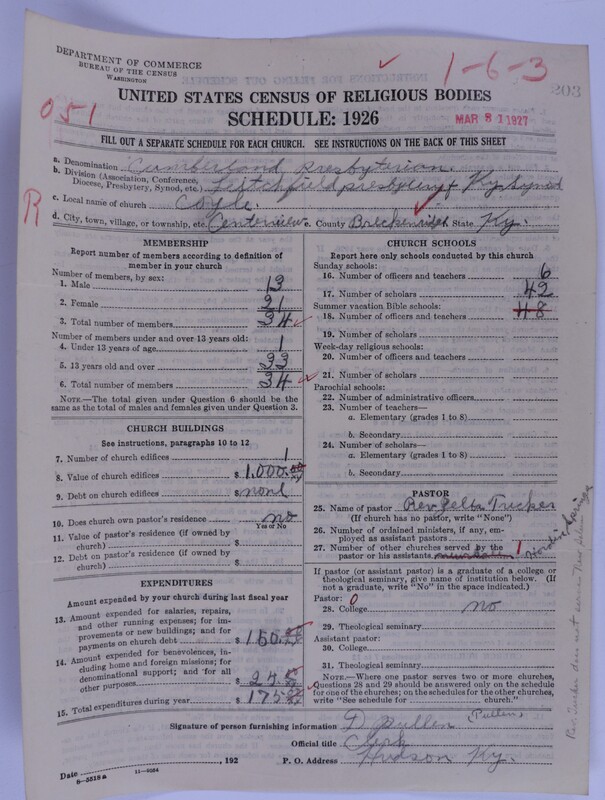 DEPARTMENT OF COMMERCE
BUREAU OF THE CENSUS
WASHINGTON
1-6-3
203
051
UNITED STATES CENSUS OF RELIGIOUS BODIES
SCHEDULE: 1926
MAR 8 1927
FILL OUT A SEPARATE SCHEDULE FOR EACH CHURCH. SEE INSTRUCTIONS ON THE BACK OF THIS SHEET
a. Denomination Cumberland Presbyterian
b. Division (Association, Conference, Diocese, Presbytery, Synod, etc.) Leitchfield presbytery & Ky. Synod
R
c. Local name of church Coyle
d. City, town, village, or township, etc. Centerview e. County Breckenridge State Ky.
MEMBERSHIP
Report number of members according to definition of
member in your church
Number of members, by sex:
1. Male 13
2. Female 21
3. Total number of members 34
Number of members under and over 13 years old:
4. Under 13 years of age 1
5. 13 years old and over 33
6. Total number of members 34
NOTE.—The total given under Question 6 should be
same as the total of males and females given under Question 3.
CHURCH BUILDINGS
See instructions, paragraphs 10 to 12
7. Number of church edifices 1
8. Value of church edifices $ 1,000.00
9. Debt on church edifices $ none
10. Does church own pastor's residence? no
Yes or No
11. Value of pastor's residence (if owned by
church) $
12. Debt on pastor's residence (if owned by
church) $
EXPENDITURES
Amount expended by church during last fiscal year
13. Amount expended for salaries, repairs,
and other running expenses; for im-
provements or new buildings; and for
payments on church debt $ 150
14. Amount expended for benevolences, in-
cluding home and foreign missions; for
denominational support; and for all
other purposes $
15. Total expenditures during year $ 175
CHURCH SCHOOLS
Report here only schools conducted by this church
Sunday schools:
16. Number of officers and teachers 6
17. Number of scholars 42
Summer vacation Bible schools:
18. Number of officers and teachers 48
19. Number of scholars
Week-day religious schools:
20. Number of officers and teachers
21. Number of scholars
Parochial schools:
22. Number of administrative officers
23. Number of teachers—
a. Elementary (grades 1 to 8)
b. Secondary
24. Number of scholars—
a. Elementary (grades 1 to 8)
b. Secondary
PASTOR
25. Name of pastor Rev. Tucker
(If church has no pastor, write "None")
26. Number of ordained ministers, if any, em-
ployed as assistant pastors
27. Number of other churches served by the
pastor or his assistants 1
If pastor (or assistant pastor) is a graduate of a college or
theological seminary, give name of institution below. (If
not a graduate, write "No" in the space indicated.)
Pastor: 0
28. College no
29. Theological seminary
Assistant pastor:
30. College
31. Theological seminary
NOTE.—Where one pastor serves two or more churches,
Questions 28 and 29 should be answered only on the schedule
for one of the churches; on the schedules for the other churches,
write "See schedule for church."
Rev. Tucker does not serve New
Signature of person furnishing information D. Pullen
Pullen
Official title Clerk
Date , 192 P. O. Address Hudson Ky.
8-5518a 11-9064